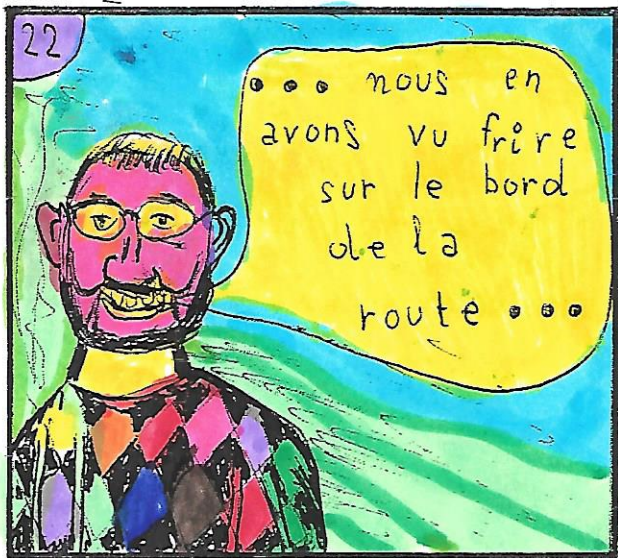 22
... nous en
avons vu frire
sur le bord
de la
route ...